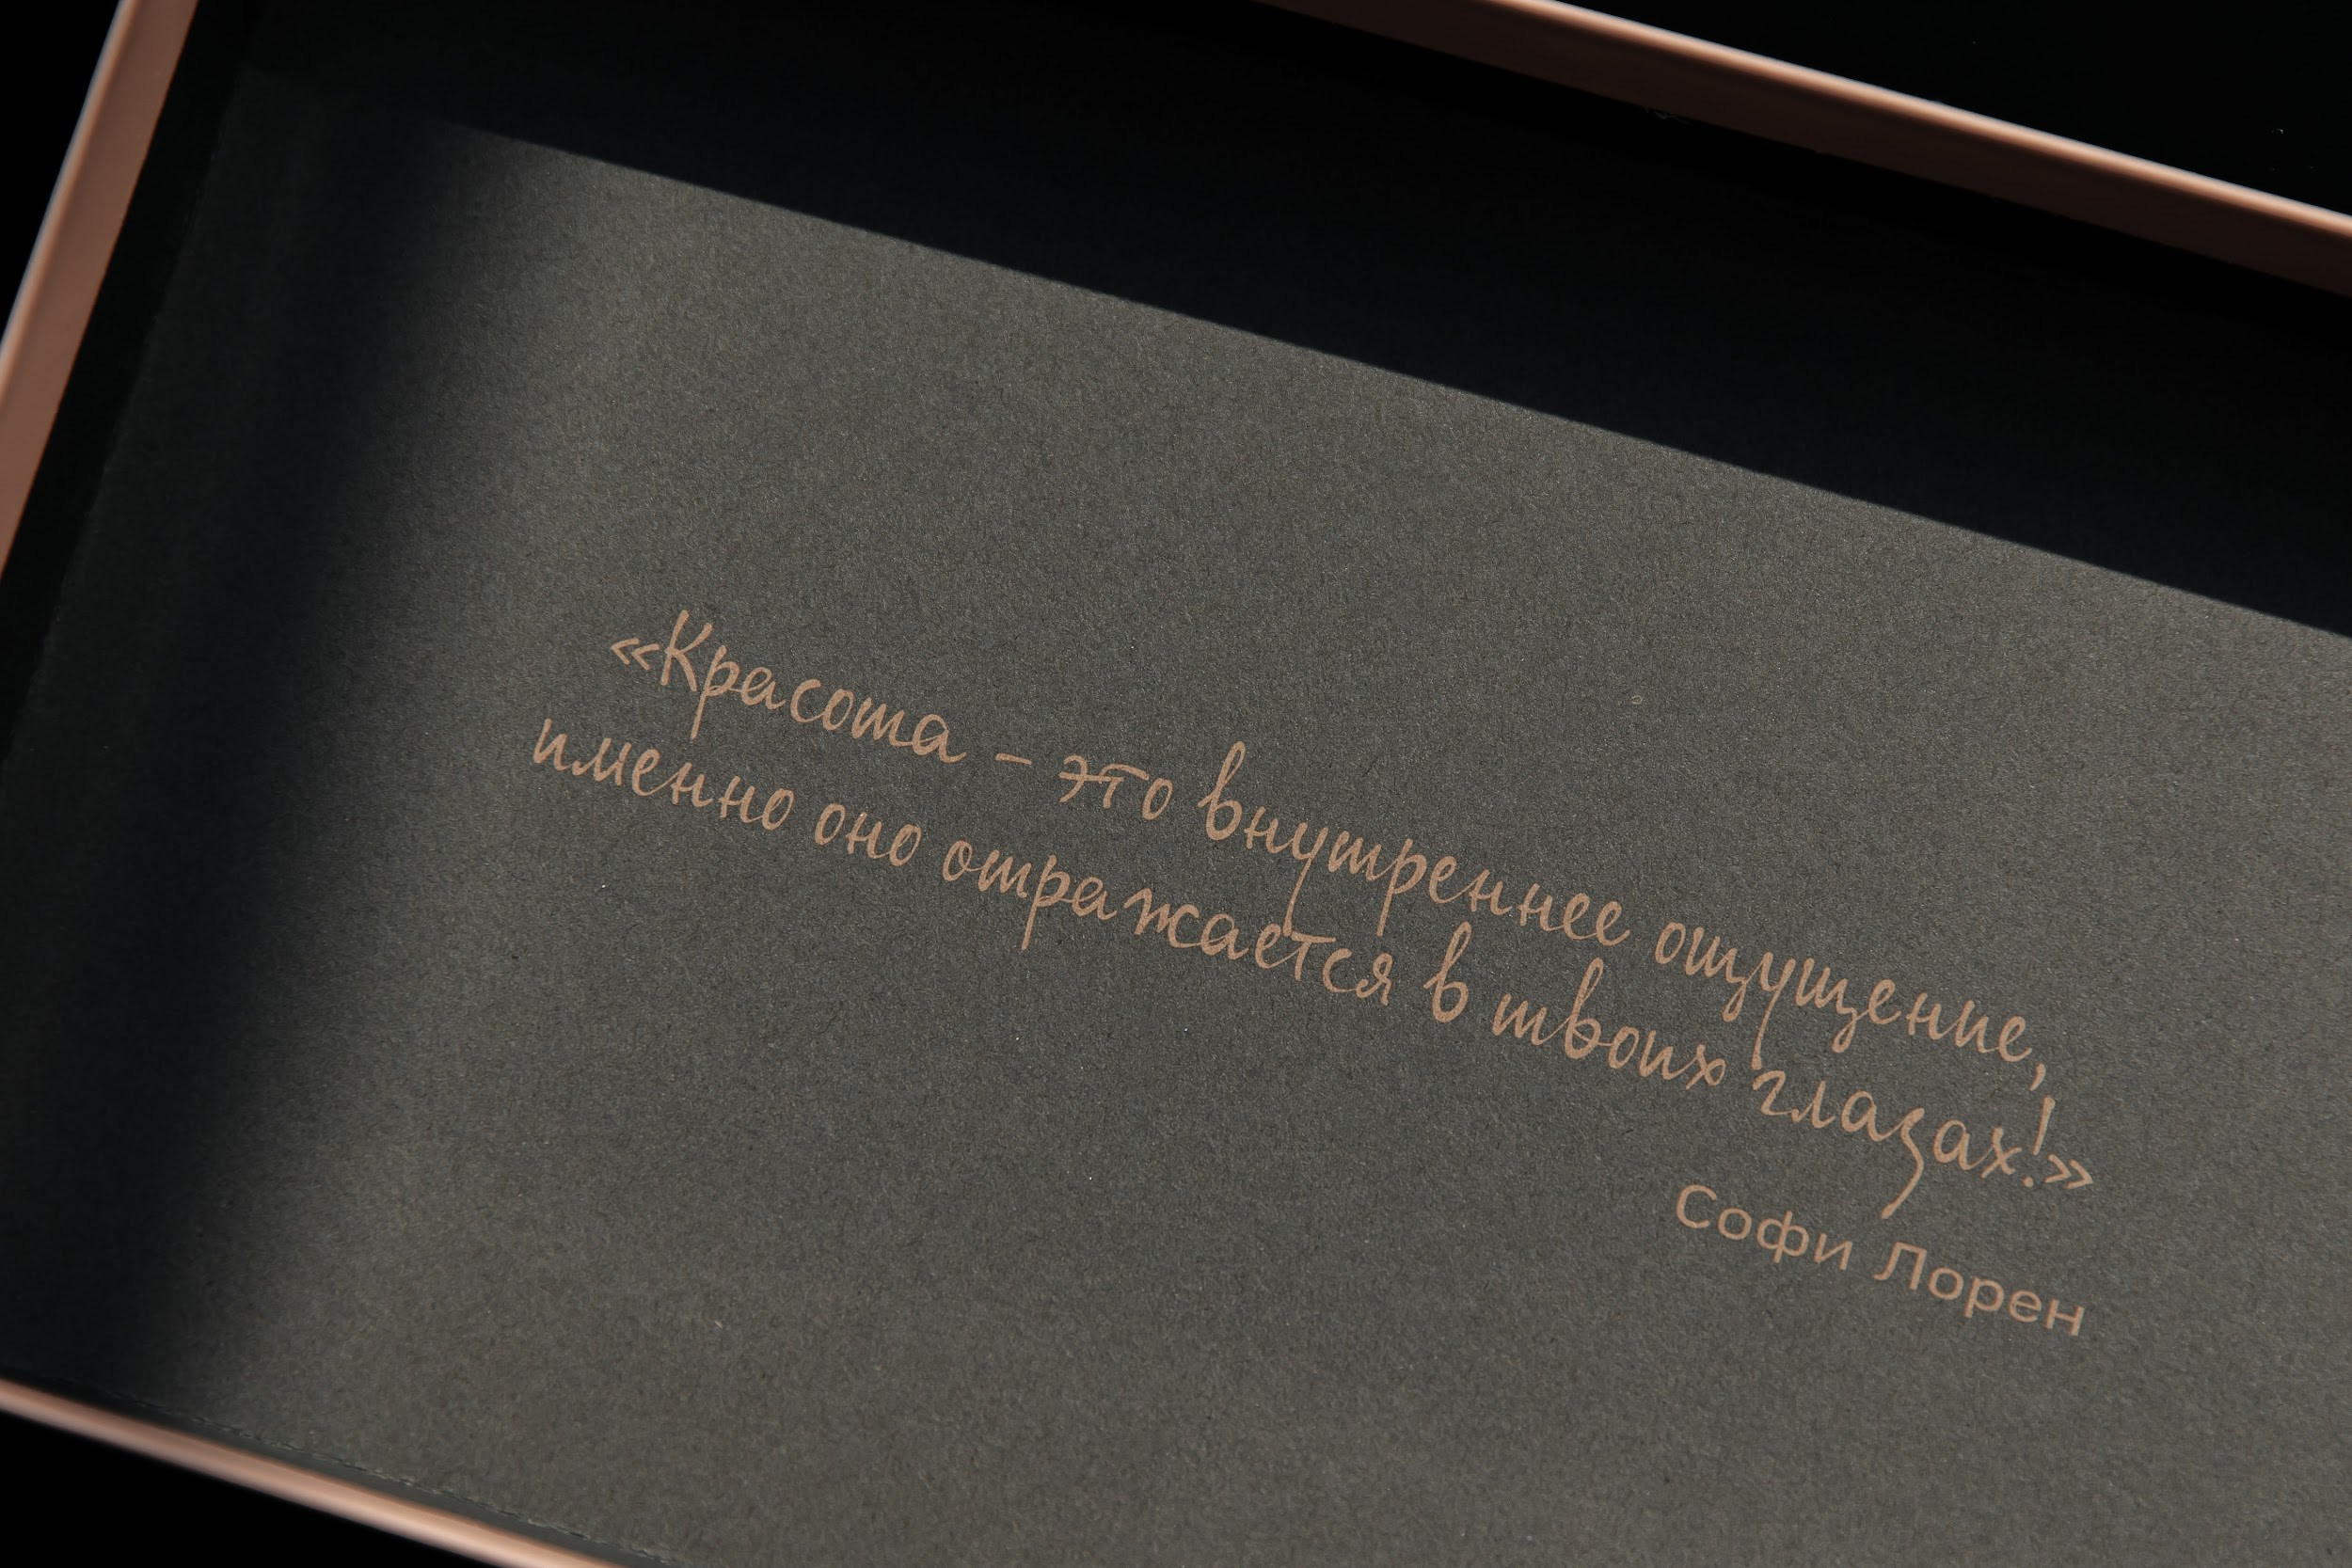 «Красота – это внутреннее ощущение,
именно оно отражается в твоих глазах!»
Софи Лорен